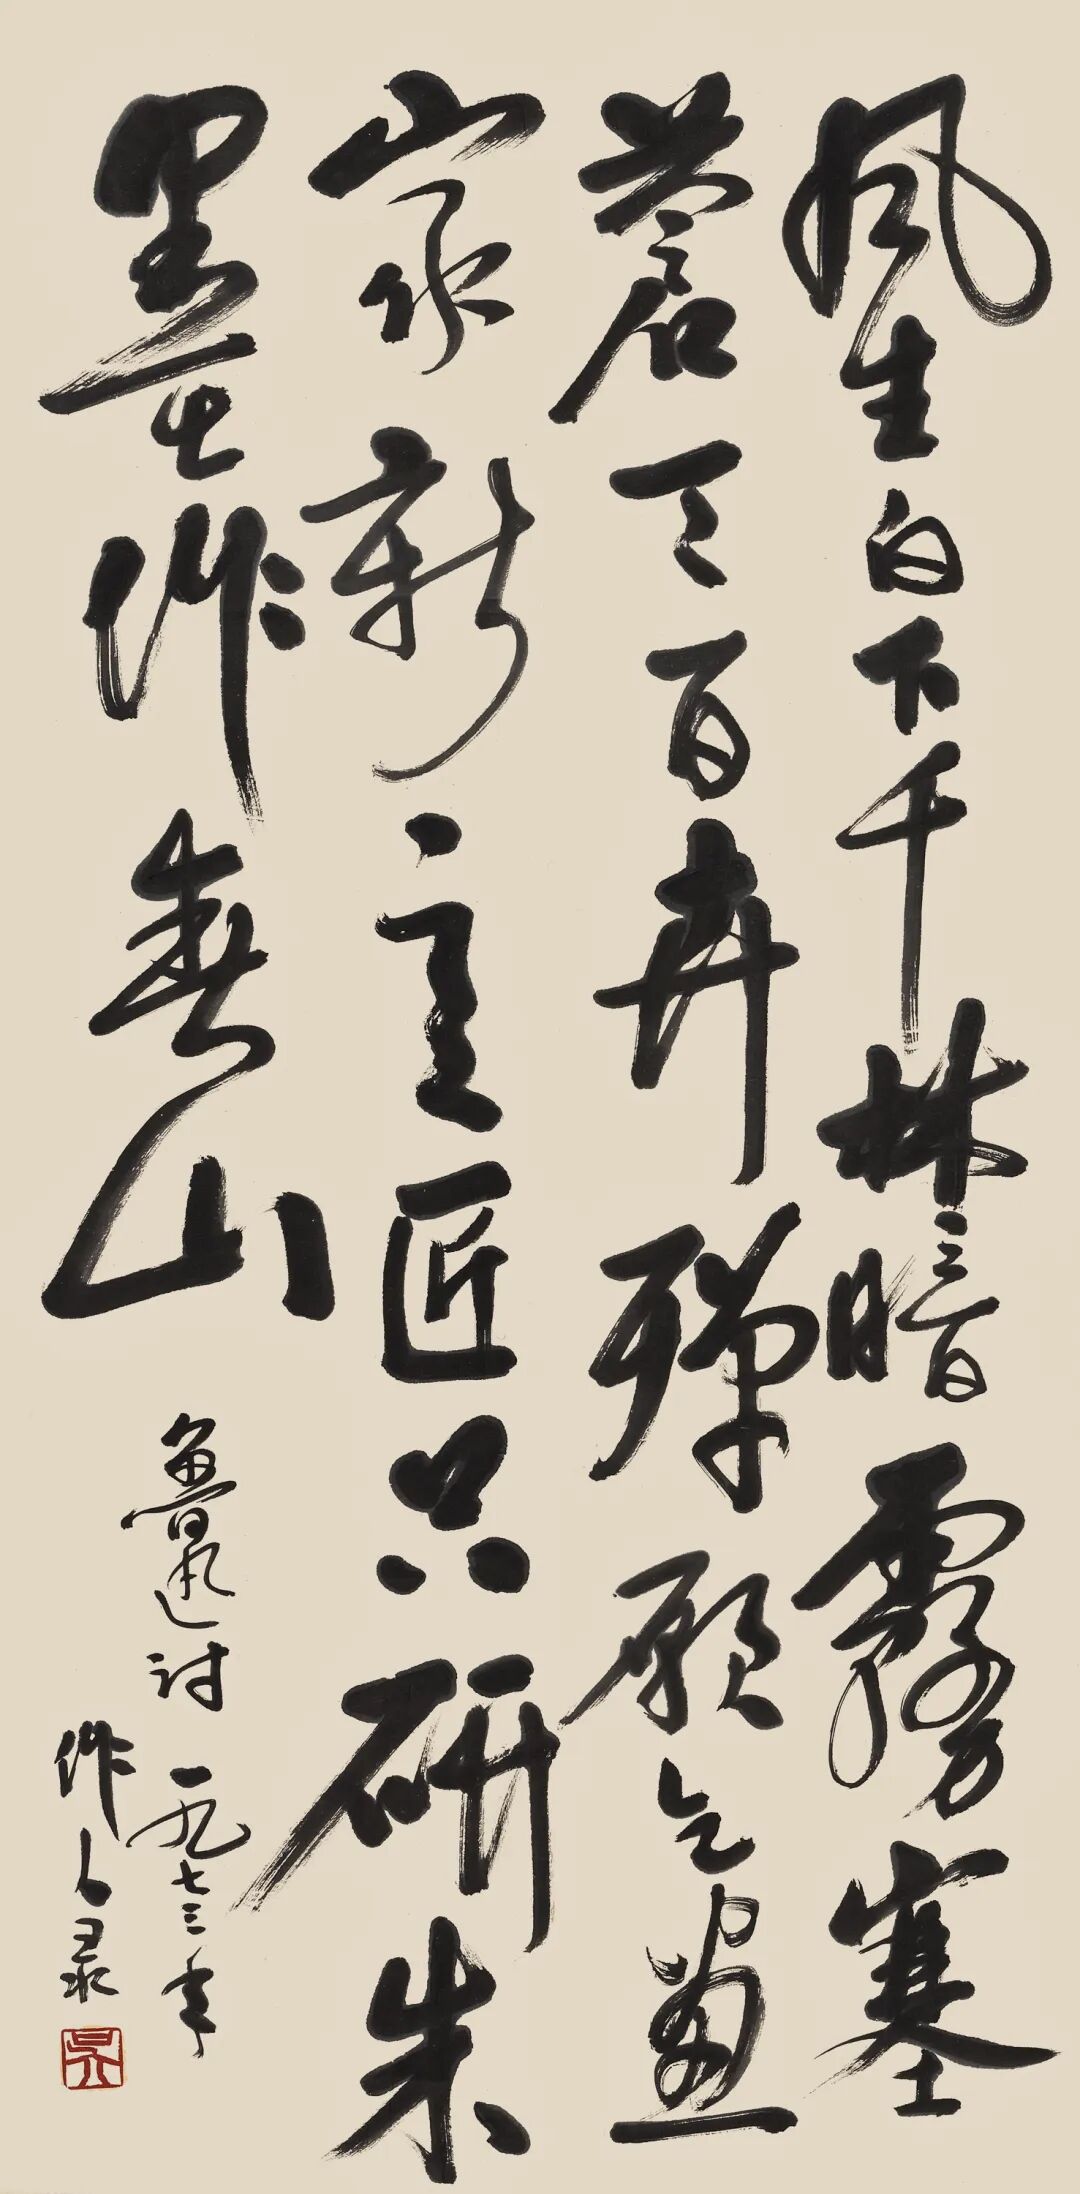 風生白下千林暗霧塞
蒼天百卉殫願乞畫
家新意匠只研朱
墨作春山
魯迅诗 一九七三年
作人录
吴